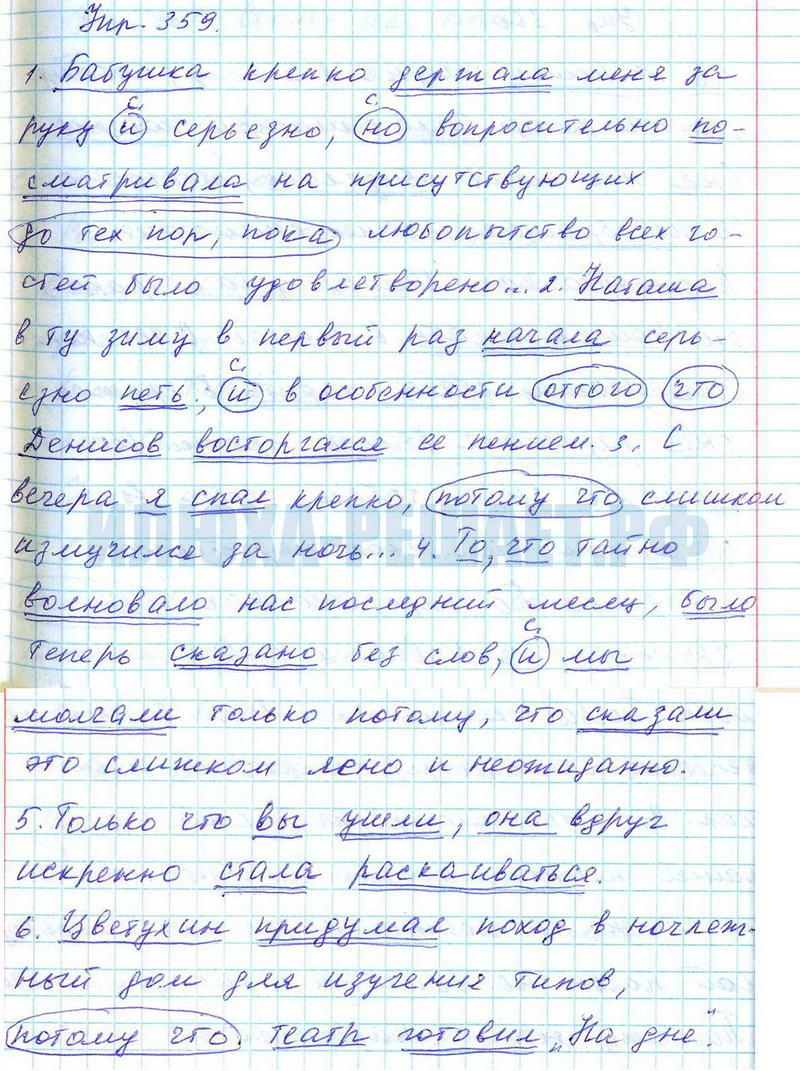 Упр. 359.
1. Бабушка крепко держала меня за
с. с.
руку и серьезно, но вопросительно по-
сматривала на присутствующих
до тех пор, пока любопытство всех го-
стей было удовлетворено... 2. Наташа
в ту зиму в первый раз начала серь-
с.
езно петь, и в особенности оттого что
Денисов восторгался ее пением. 3. С
вечера я спал крепко, потому что слишком
ИЛЮХА РЕШАЕТ.РФ
измучился за ночь... 4. То, что тайно
волновало нас последний месяц, было
с.
теперь сказано без слов, и мы
молчали только потому, что сказали
это слишком ясно и неожиданно.
5. Только что вы ушли, она вдруг
искренно стала раскаиваться.
6. Цветухин придумал поход в ночлеж-
ный дом для изучения типов,
потому что театр готовил „На дне".